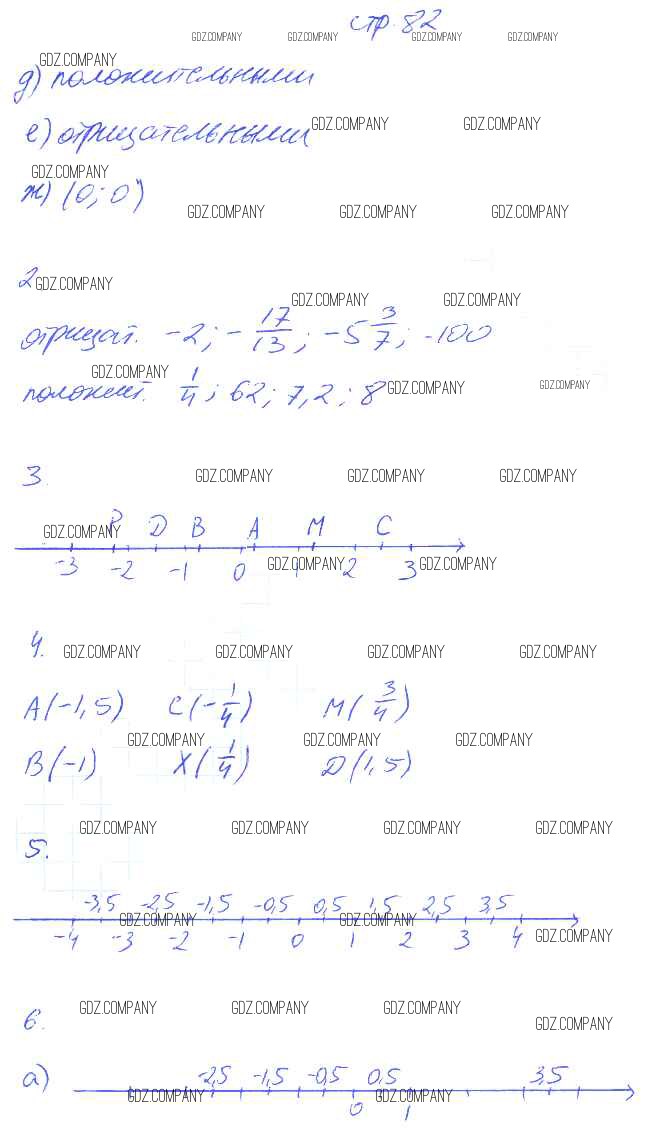 стр. 82
GDZ.COMPANY GDZ.COMPANY GDZ.COMPANY GDZ.COMPANY
GDZ.COMPANY
д) положительными
е) отрицательными
GDZ.COMPANY GDZ.COMPANY
GDZ.COMPANY
ж) (0; 0)
GDZ.COMPANY GDZ.COMPANY GDZ.COMPANY
2
GDZ.COMPANY
GDZ.COMPANY GDZ.COMPANY
отрицат. -2; -17/13; -5 3/7; -100
GDZ.COMPANY
положит. 1/4; 62; 7,2; 8
GDZ.COMPANY GDZ.COMPANY
3.
GDZ.COMPANY GDZ.COMPANY GDZ.COMPANY
GDZ.COMPANY
P D B A M C
-3 -2 -1 0 1 2 3
GDZ.COMPANY GDZ.COMPANY
4.
GDZ.COMPANY GDZ.COMPANY GDZ.COMPANY GDZ.COMPANY
A(-1,5) C(-1/4) M(3/4)
GDZ.COMPANY GDZ.COMPANY GDZ.COMPANY
B(-1) X(1/4) D(1,5)
GDZ.COMPANY GDZ.COMPANY GDZ.COMPANY GDZ.COMPANY
5.
-3,5 -2,5 -1,5 -0,5 0,5 1,5 2,5 3,5
GDZ.COMPANY GDZ.COMPANY
-4 -3 -2 -1 0 1 2 3 4
GDZ.COMPANY
GDZ.COMPANY GDZ.COMPANY GDZ.COMPANY
6.
GDZ.COMPANY
а) -2,5 -1,5 -0,5 0,5 3,5
GDZ.COMPANY GDZ.COMPANY
0 1